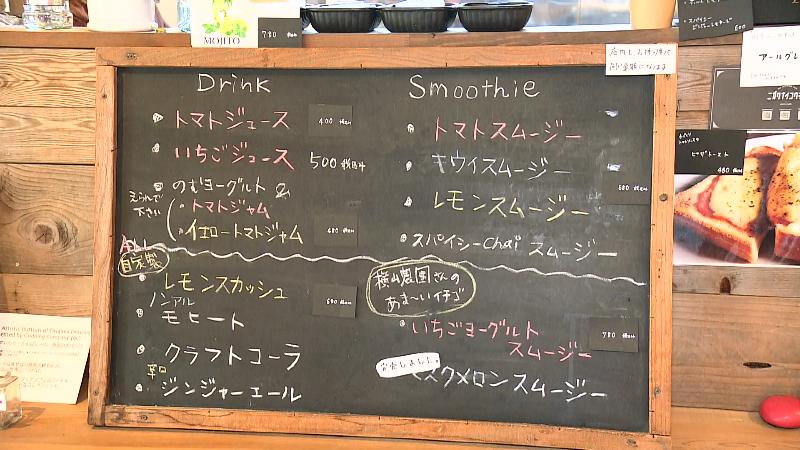 MOJITO
780
店内も お持ち帰りも
同じ金額になります
Drink
トマトジュース
400
いちごジュース 500
のむヨーグルト
えらんで下さい
トマトジャム
イエロートマトジャム 480
ALL
自家製
レモンスカッシュ
680
ノンアル
モヒート
クラフトコーラ
辛口
ジンジャーエール
Smoothie
トマトスムージー
キウイスムージー
680
レモンスムージー
スパイシーchai スムージー
横山農園さんの
あま〜いイチゴ
いちごヨーグルト
スムージー
780
完売しました
マスクメロンスムージー
600
アールグレ
ピザトースト
480